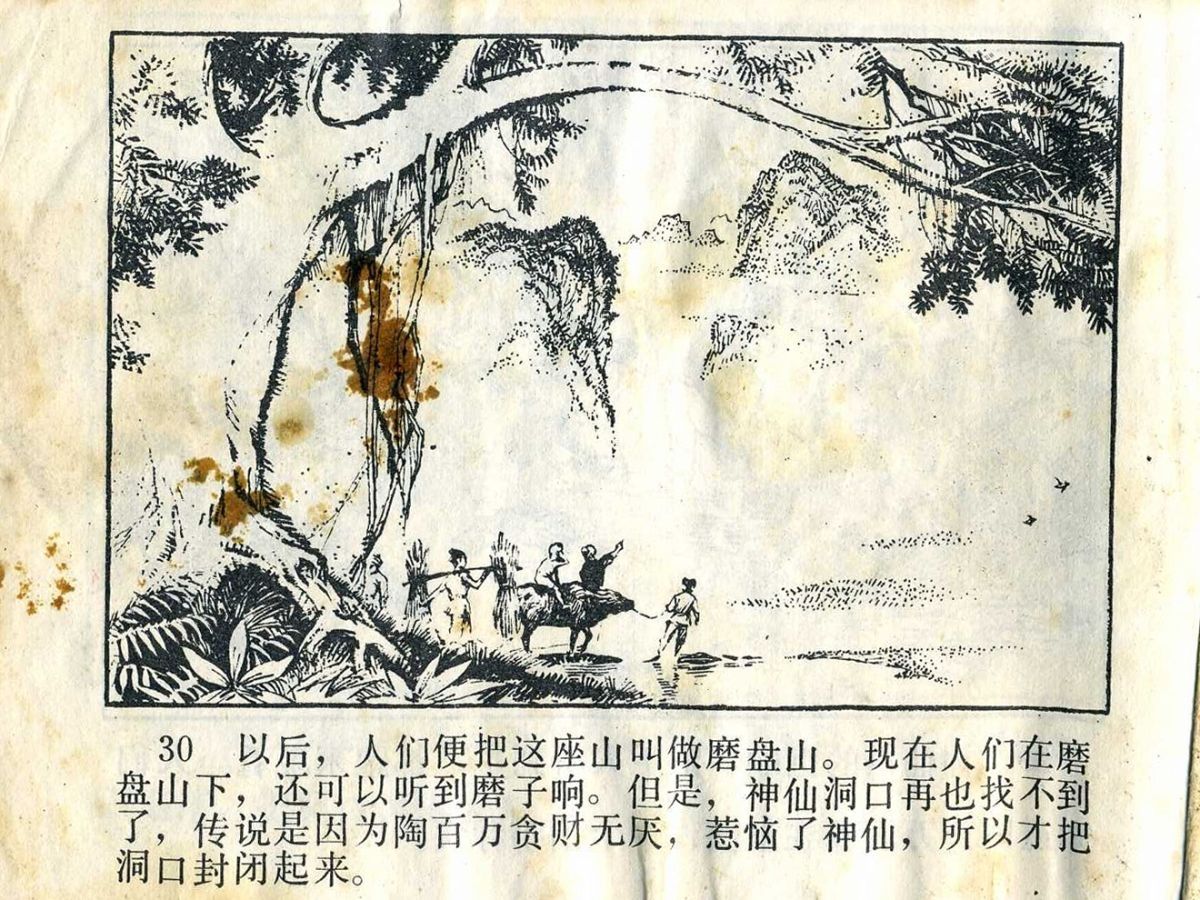 30 以后，人们便把这座山叫做磨盘山。现在人们在磨
盘山下，还可以听到磨子响。但是，神仙洞口再也找不到
了，传说是因为陶百万贪财无厌，惹恼了神仙，所以才把
洞口封闭起来。